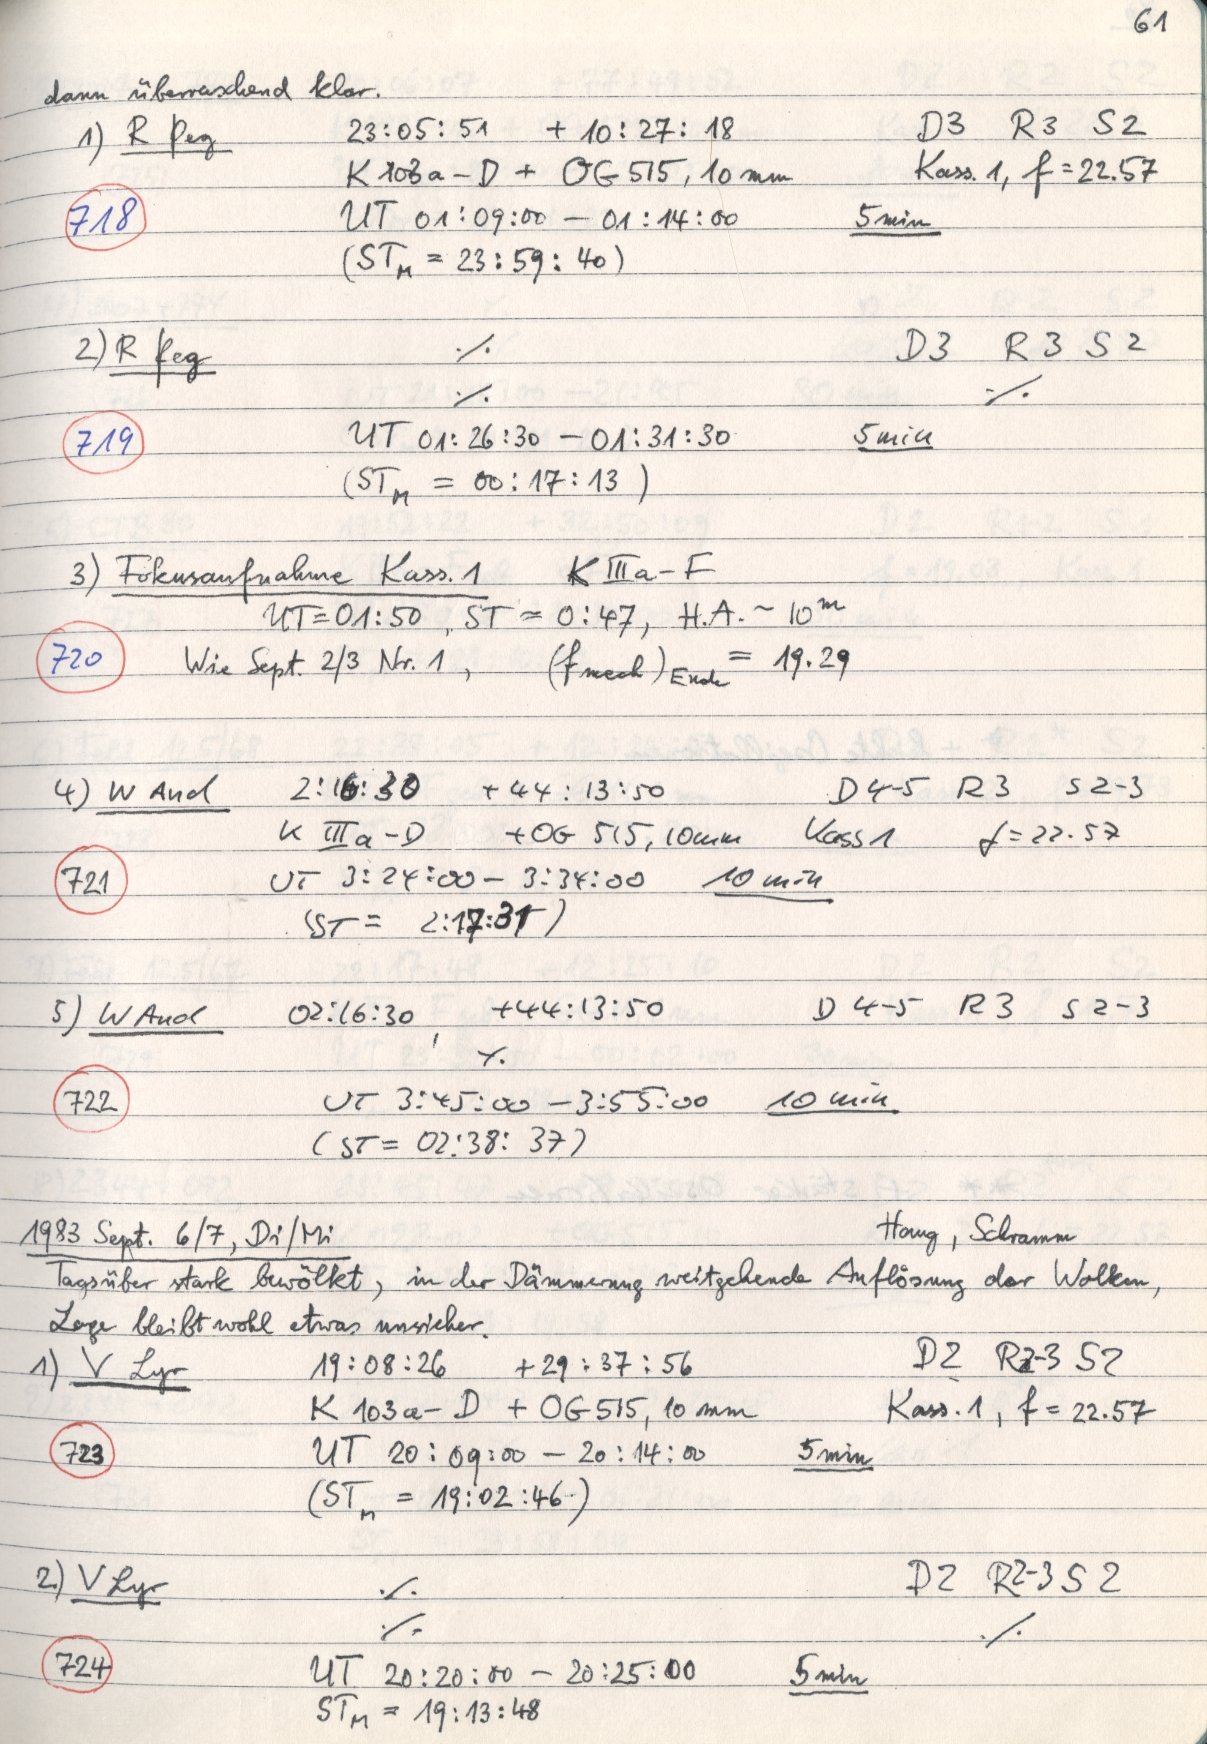 61
dann überraschend klar.
1) R Peg 23:05:51 +10:27:18 D3 R3 S2
K 103a-D + OG 515, 10 mm Kass. 1, f = 22.57
718 UT 01:09:00 - 01:14:00 5 min
(ST_M = 23:59:40)
2) R Peg ./. D3 R3 S2
./. ./.
719 UT 01:26:30 - 01:31:30 5 min
(ST_M = 00:17:13)
3) Fokusaufnahme Kass. 1 K IIIa-F
UT=01:50, ST = 0:47, H.A. ~ 10^m
720 Wie Sept. 2/3 Nr. 1, (f mech)_Ende = 19.29
4) W And 2:16:30 +44:13:50 D 4-5 R3 S 2-3
K IIIa-D +OG 515, 10mm Kass 1 f = 22.57
721 UT 3:24:00 - 3:34:00 10 min
(ST = 2:17:31)
5) W And 02:16:30, +44:13:50 D 4-5 R3 S 2-3
./.
722 UT 3:45:00 - 3:55:00 10 min
(ST = 02:38:37)
1983 Sept. 6/7, Di/Mi Haug, Schramm
Tagsüber stark bewölkt, in der Dämmerung weitgehende Auflösung der Wolken,
Lage bleibt wohl etwas unsicher.
1) V Lyr 19:08:26 +29:37:56 D2 R2-3 S2
K 103a-D + OG 515, 10 mm Kass. 1, f = 22.57
723 UT 20:09:00 - 20:14:00 5 min
(ST_M = 19:02:46)
2.) V Lyr ./. D2 R2-3 S2
./. ./.
724 UT 20:20:00 - 20:25:00 5 min
ST_M = 19:13:48